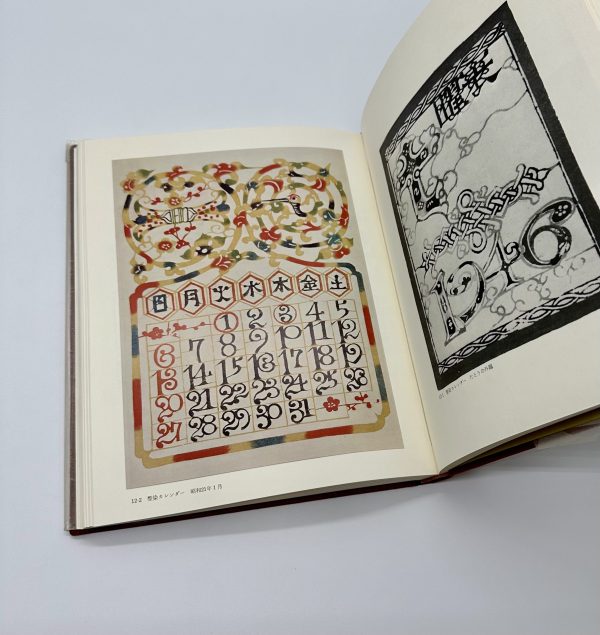 日 月 火 水 木 金 土
1 2 3 4 5
6 7 8 9 10 11 12
13 14 15 16 17 18 19
20 21 22 23 24 25 26
27 28 29 30 31
12-2 型染カレンダー 昭和21年1月
曜表
1946
カレンダー